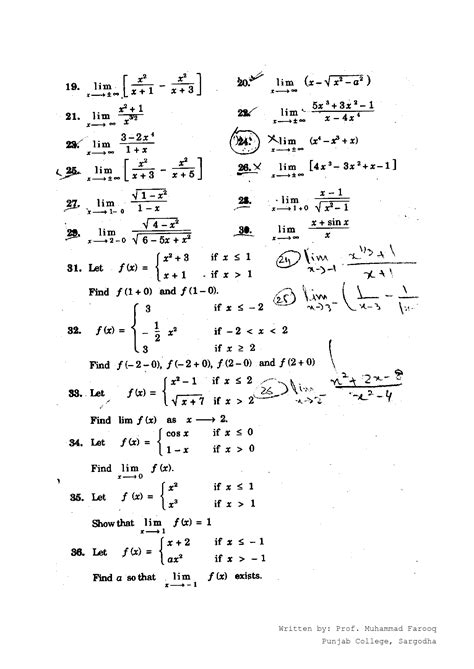 19. lim x→±∞ [ x²/(x+1) − x²/(x+3) ] 20. lim x→±∞ (x−√(x²−a²))
21. lim x→∞ (x²+1)/x^(3/2) 22. lim x→±∞ (5x³+3x²−1)/(x−4x⁴)
23. lim x→±∞ (3−2x⁴)/(1+x) 24. lim x→±∞ (x⁴−x³+x)
25. lim x→±∞ [ x²/(x+3) − x²/(x+5) ] 26. lim x→±∞ [4x³−3x²+x−1]
27. lim x→1−0 √(1−x²)/(1−x) 28. lim x→1+0 (x−1)/√(x²−1)
29. lim x→2−0 √(4−x²)/√(6−5x+x²) 30. lim x→∞ (x+sin x)/x
31. Let f(x) = { x²+3 if x ≤ 1
x+1 if x > 1
24) lim x→−1 (x^(1/3)+1)/(x+1)
Find f(1+0) and f(1−0).
25) lim x→3 (1/(x−3) − 1/
32. f(x) = { 3 if x ≤ −2
−1/2 x² if −2 < x < 2
3 if x ≥ 2
Find f(−2−0), f(−2+0), f(2−0) and f(2+0)
33. Let f(x) = { x²−1 if x ≤ 2
√(x+7) if x > 2
26) lim (x²+2x−8)/(x²−4)
Find lim f(x) as x → 2.
34. Let f(x) = { cos x if x ≤ 0
1−x if x > 0
Find lim x→0 f(x).
35. Let f(x) = { x² if x ≤ 1
x³ if x > 1
Show that lim x→1 f(x) = 1
36. Let f(x) = { x+2 if x ≤ −1
ax² if x > −1
Find a so that lim x→−1 f(x) exists.
Written by: Prof. Muhammad Farooq
Punjab College, Sargodha